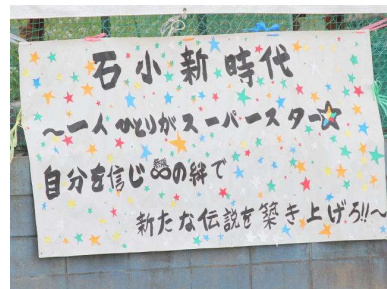 石小新時代
～一人ひとりがスーパースター☆
自分を信じ の絆で
新たな伝説を築き上げろ!!～